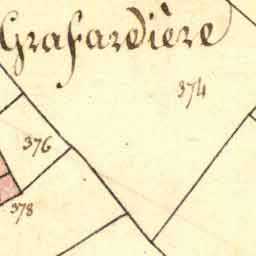 Grafardière
374
376
378